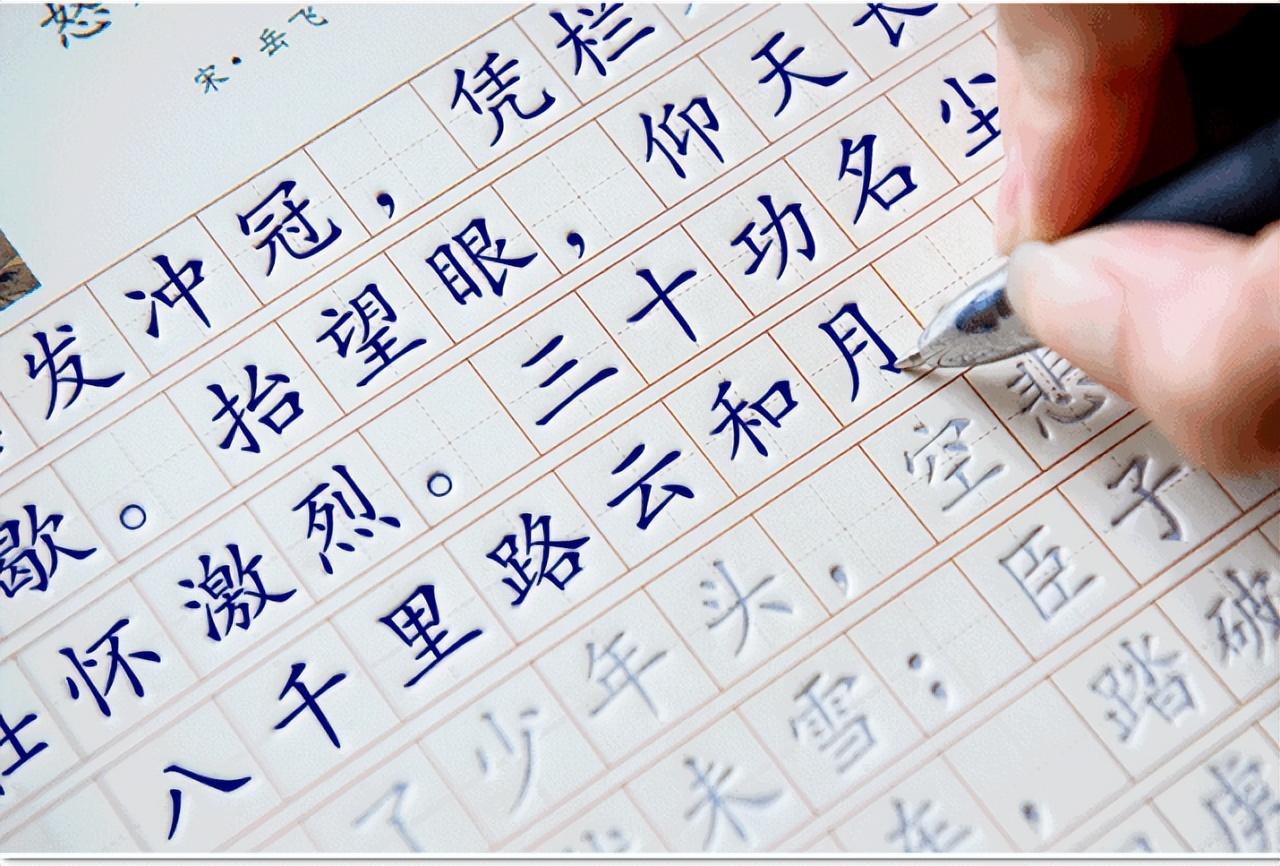 怒
宋·岳飞
发冲冠，凭栏
歇。抬望眼，仰天长
壮怀激烈。三十功名尘
八千里路云和月
了少年头，空悲
未雪；臣子
，踏破
虏